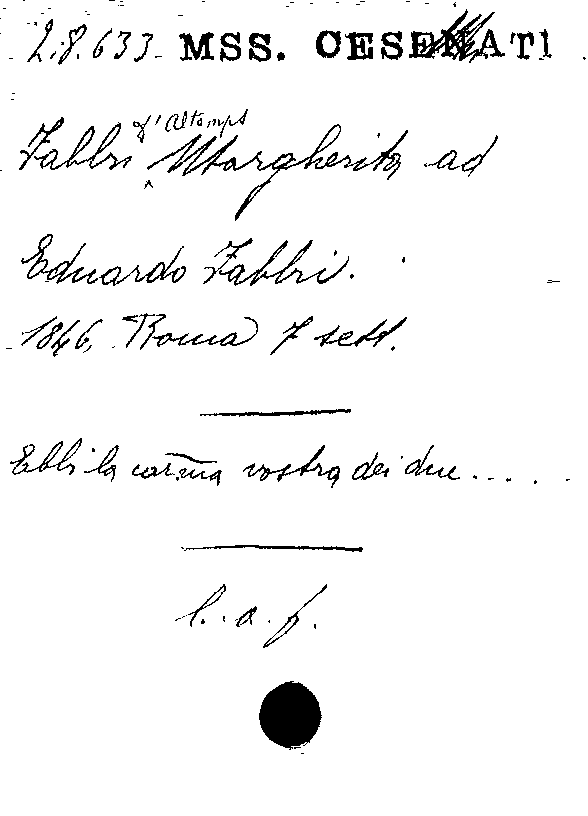 28.633 MSS. CESENATI
d'Altemps
Fabbri Margherita ad
Eduardo Fabbri.
1846, Roma 7 sett.
Ebbi la car.ma vostra dei due.....
l. a. f.